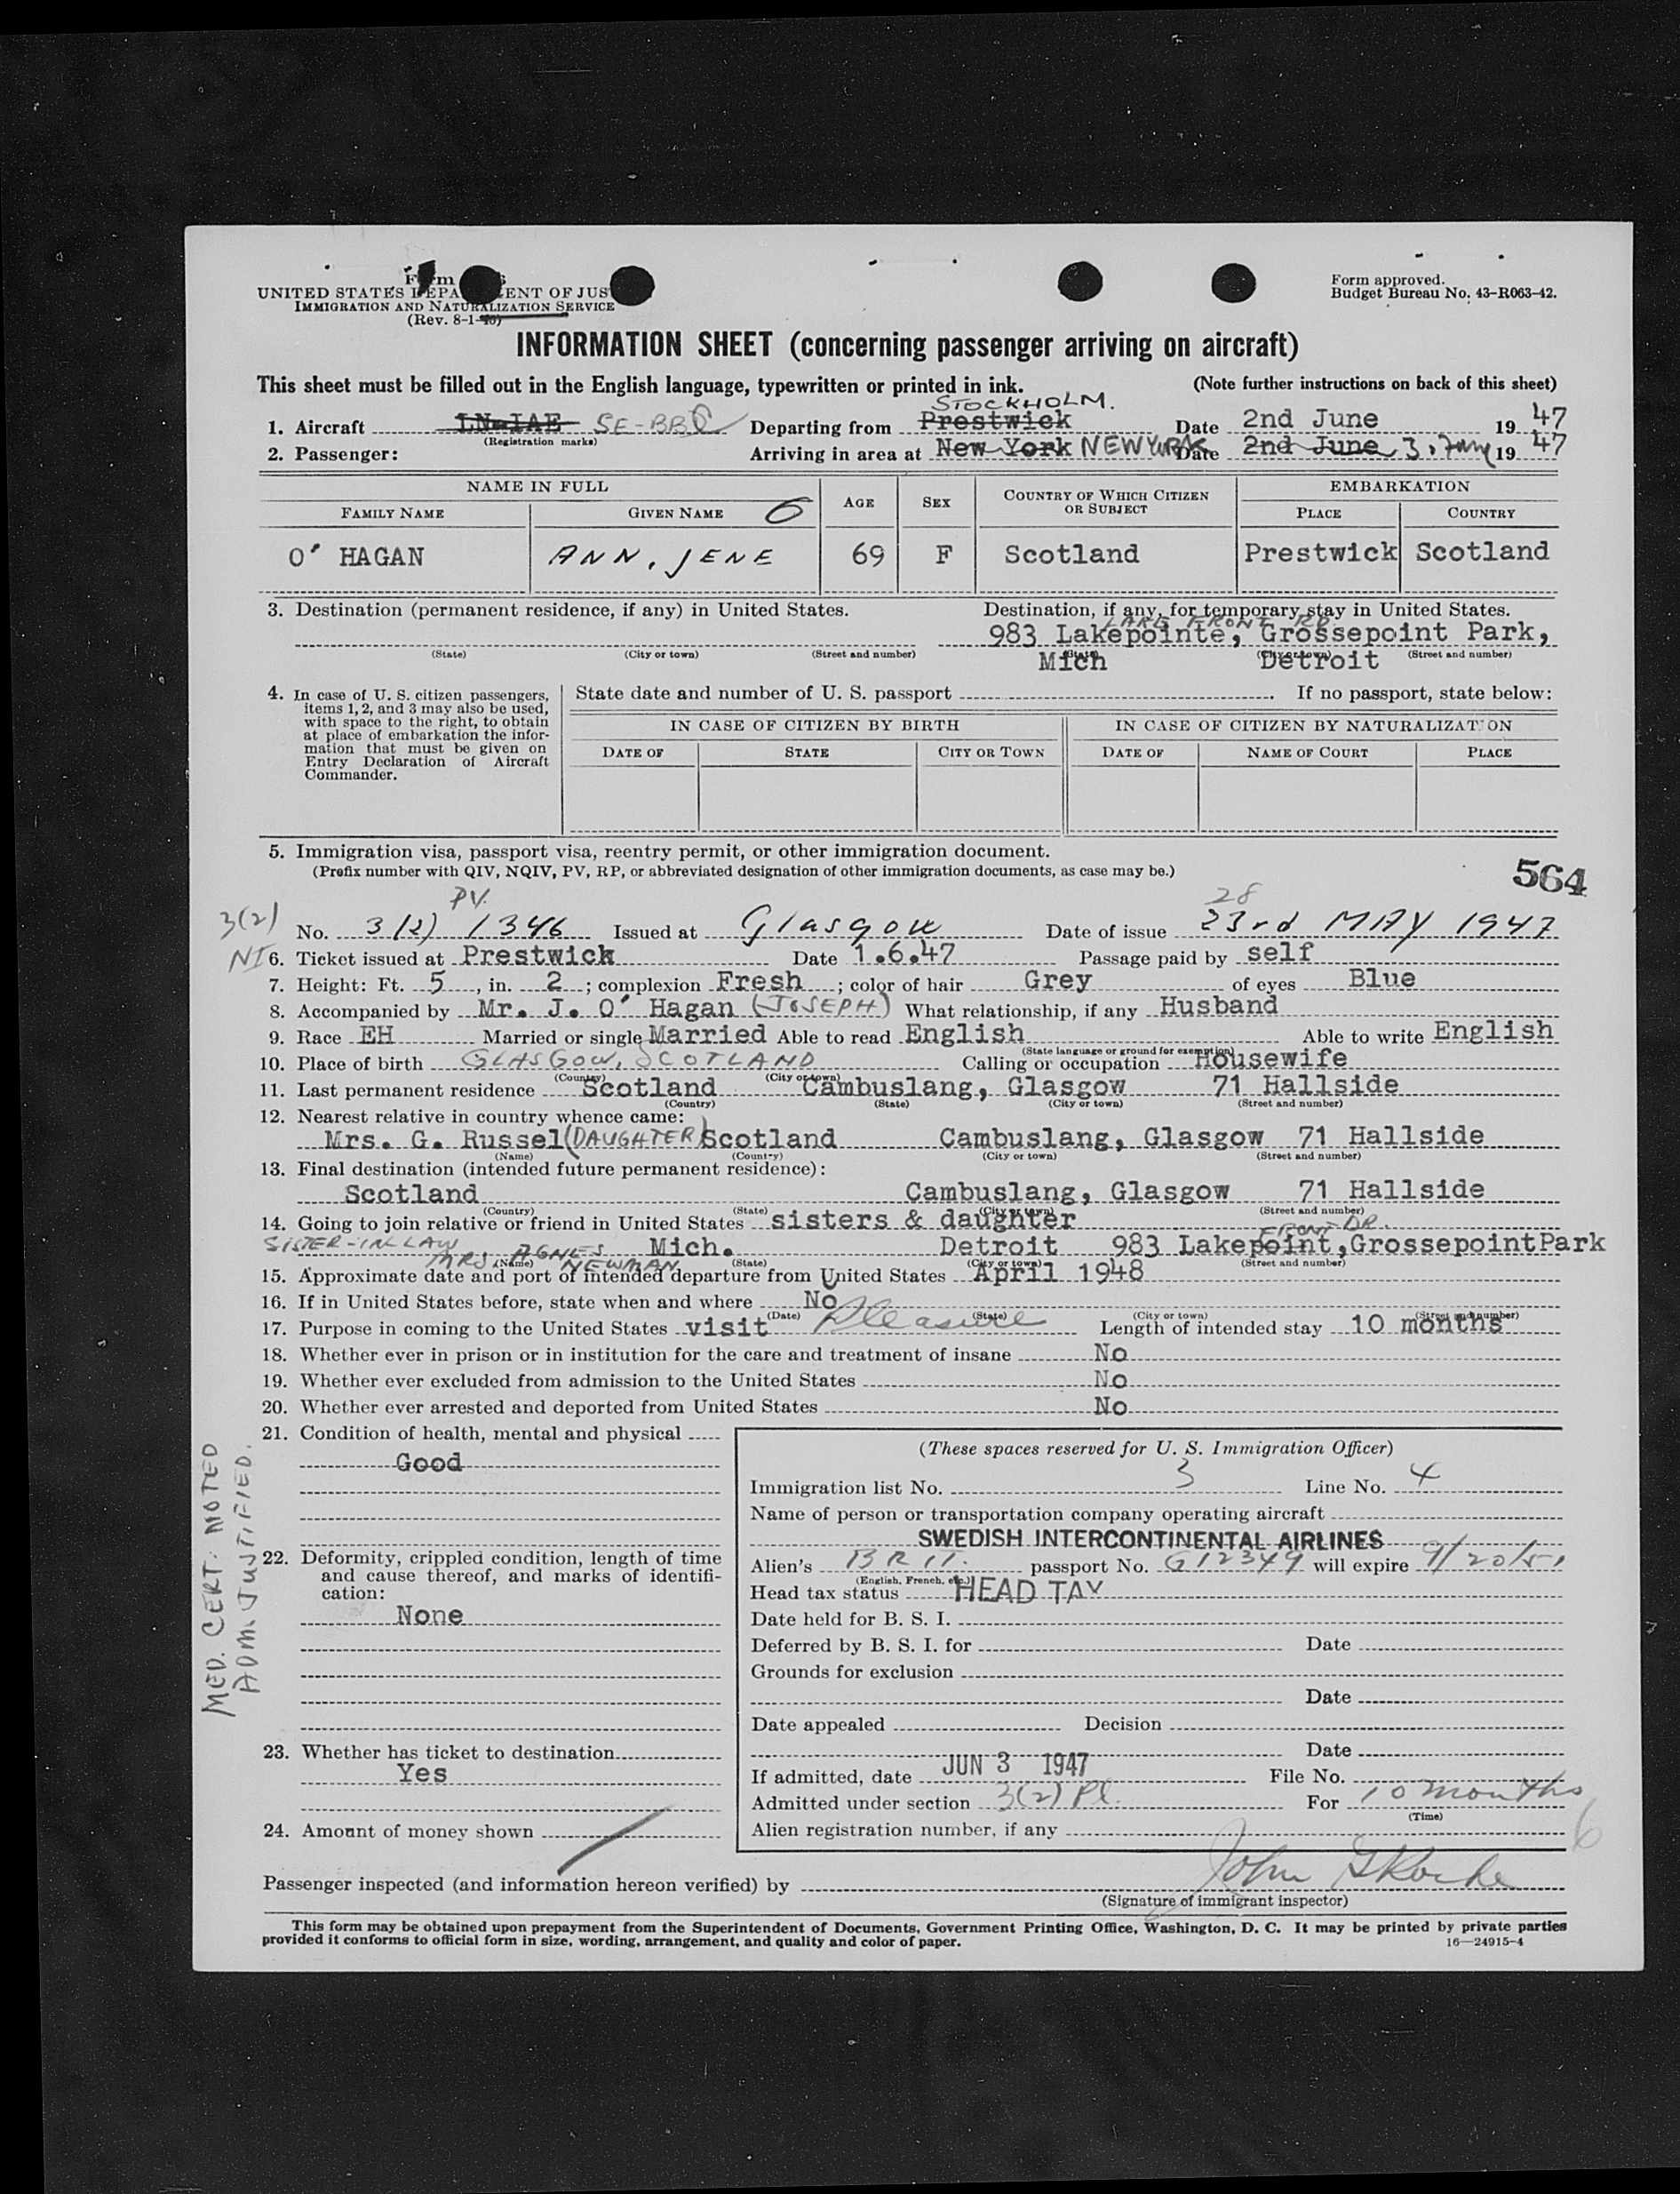 Form
UNITED STATES DEPARTMENT OF JUSTICE
IMMIGRATION AND NATURALIZATION SERVICE
(Rev. 8-1-45)
Form approved.
Budget Bureau No. 43-R063-42.
INFORMATION SHEET (concerning passenger arriving on aircraft)
This sheet must be filled out in the English language, typewritten or printed in ink. (Note further instructions on back of this sheet)
STOCKHOLM.
1. Aircraft LN-IAE SE-BBC Departing from Prestwick Date 2nd June 1947
(Registration marks)
2. Passenger: Arriving in area at New York NEW YORK Date 2nd June 3. June 1947
NAME IN FULL AGE SEX COUNTRY OF WHICH CITIZEN OR SUBJECT EMBARKATION
FAMILY NAME GIVEN NAME 6 PLACE COUNTRY
O' HAGAN ANN, JENE 69 F Scotland Prestwick Scotland
3. Destination (permanent residence, if any) in United States. Destination, if any, for temporary stay in United States.
LAKE FRONT RD.
983 Lakepointe, Grossepoint Park,
(State) (City or town) (Street and number) (State) (City or town) (Street and number)
Mich Detroit
4. In case of U. S. citizen passengers,
items 1, 2, and 3 may also be used,
with space to the right, to obtain
at place of embarkation the infor-
mation that must be given on
Entry Declaration of Aircraft
Commander.
State date and number of U. S. passport . If no passport, state below:
IN CASE OF CITIZEN BY BIRTH IN CASE OF CITIZEN BY NATURALIZATION
DATE OF STATE CITY OR TOWN DATE OF NAME OF COURT PLACE
5. Immigration visa, passport visa, reentry permit, or other immigration document.
(Prefix number with QIV, NQIV, PV, RP, or abbreviated designation of other immigration documents, as case may be.)
564
PV. 28
3(2) No. 3(2) 1346 Issued at Glasgow Date of issue 23rd MAY 1947
NI 6. Ticket issued at Prestwick Date 1.6.47 Passage paid by self
7. Height: Ft. 5, in. 2; complexion Fresh; color of hair Grey of eyes Blue
8. Accompanied by Mr. J. O' Hagan (JOSEPH) What relationship, if any Husband
9. Race EH Married or single Married Able to read English Able to write English
(State language or ground for exemption)
10. Place of birth GLASGOW, SCOTLAND Calling or occupation Housewife
(Country) (City or town)
11. Last permanent residence Scotland Cambuslang, Glasgow 71 Hallside
(Country) (State) (City or town) (Street and number)
12. Nearest relative in country whence came:
Mrs. G. Russel (DAUGHTER) Scotland Cambuslang, Glasgow 71 Hallside
(Name) (Country) (City or town) (Street and number)
13. Final destination (intended future permanent residence):
Scotland Cambuslang, Glasgow 71 Hallside
(Country) (State) (City or town) (Street and number)
14. Going to join relative or friend in United States sisters & daughter
FRONT DR.
SISTER-IN LAW Mich. Detroit 983 Lakepoint, GrossepointPark
MRS AGNES NEWMAN
(Name) (State) (City or town) (Street and number)
15. Approximate date and port of intended departure from United States April 1948
16. If in United States before, state when and where No
(Date) (State) (City or town) (Street and number)
17. Purpose in coming to the United States visit Pleasure Length of intended stay 10 months
18. Whether ever in prison or in institution for the care and treatment of insane No
19. Whether ever excluded from admission to the United States No
20. Whether ever arrested and deported from United States No
21. Condition of health, mental and physical
Good
22. Deformity, crippled condition, length of time
and cause thereof, and marks of identifi-
cation:
None
23. Whether has ticket to destination
Yes
24. Amount of money shown
MED. CERT. NOTED
ADM. JUSTIFIED.
(These spaces reserved for U. S. Immigration Officer)
Immigration list No. 3 Line No. 4
Name of person or transportation company operating aircraft
SWEDISH INTERCONTINENTAL AIRLINES
Alien's BRIT. passport No. G12349 will expire 9/20/51
(English, French, etc.)
Head tax status HEAD TAX
Date held for B. S. I.
Deferred by B. S. I. for Date
Grounds for exclusion
Date
Date appealed Decision
Date
If admitted, date JUN 3 1947 File No.
Admitted under section 3(2) Pl. For 10 months
(Time)
Alien registration number, if any 6
Passenger inspected (and information hereon verified) by John G
(Signature of immigrant inspector)
This form may be obtained upon prepayment from the Superintendent of Documents, Government Printing Office, Washington, D. C. It may be printed by private parties
provided it conforms to official form in size, wording, arrangement, and quality and color of paper. 16—24915-4